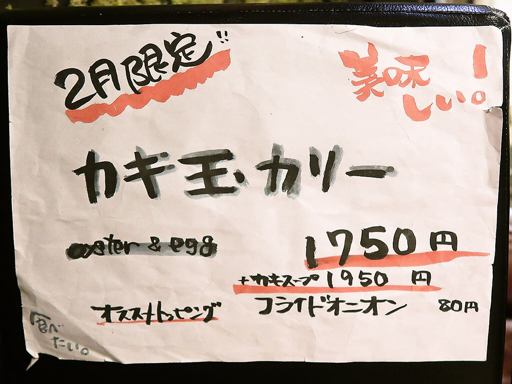 2月限定!!
美味しい。!
カキ玉カリー
oyster & egg
1750円
+カキスープ 1950円
オススメトッピング フライドオニオン 80円
食べたい。